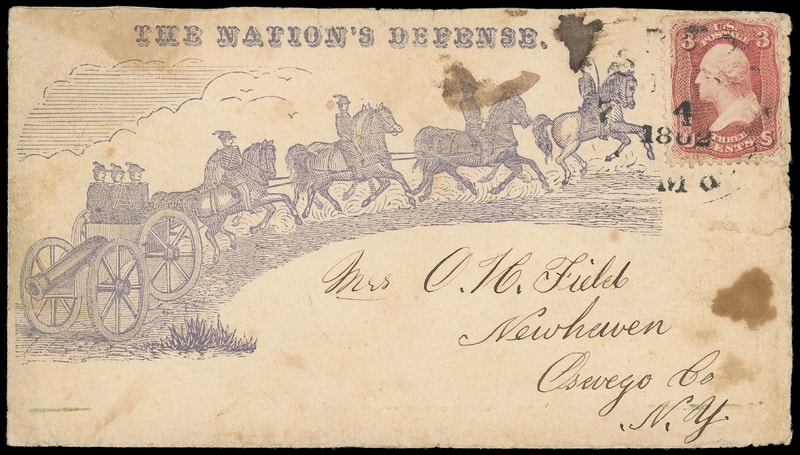 THE NATION'S DEFENSE.
3 U.S. 3
POSTAGE
THREE
CENTS
7 4
1862
Mo
Mrs O. H. Field
Newhaven
Oswego Co
N. Y.